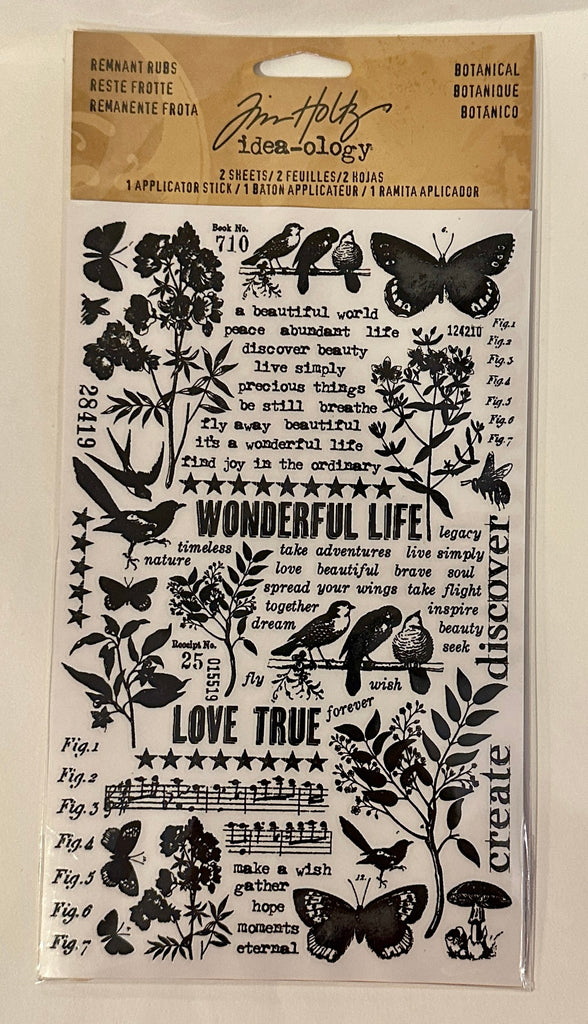 REMNANT RUBS
RESTE FROTTE
REMANENTE FROTA
BOTANICAL
BOTANIQUE
BOTÁNICO
Tim Holtz
idea-ology
2 SHEETS/2 FEUILLES/2 HOJAS
1 APPLICATOR STICK / 1 BÂTON APPLICATEUR / 1 RAMITA APLICADOR
Book No.
710
6.
a beautiful world
peace abundant life
discover beauty
live simply
precious things
be still breathe
fly away beautiful
it's a wonderful life
find joy in the ordinary
124210
Fig.1
Fig.2
Fig.3
Fig.4
Fig.5
Fig.6
Fig.7
28419
WONDERFUL LIFE
legacy
timeless
nature
take adventures live simply
love beautiful brave soul
spread your wings take flight
together
dream
inspire
beauty
seek
discover
Receipt No.
25
015519
fly
wish
LOVE TRUE
forever
Fig.1
Fig.2
Fig.3
Fig.4
Fig.5
Fig.6
Fig.7
create
make a wish
gather
hope
moments
eternal
12.